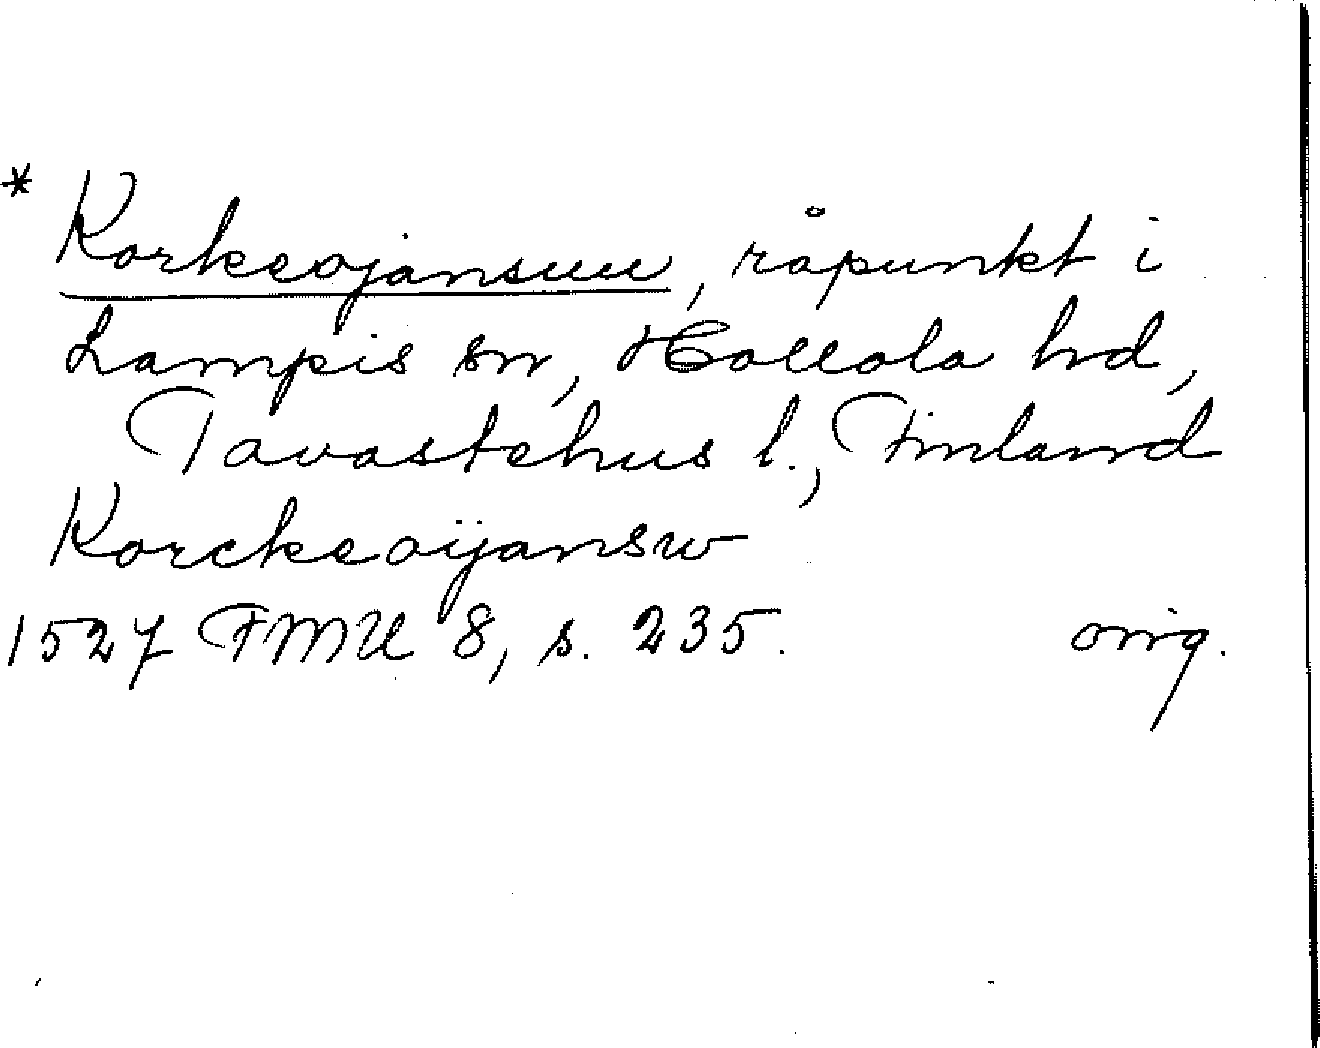 * Korkeojansuu, råpunkt i
Lampis sn, Hollola hd,
Tavastehus l., Finland
Korckeoijansw
1527 FMU 8, s. 235. orig.